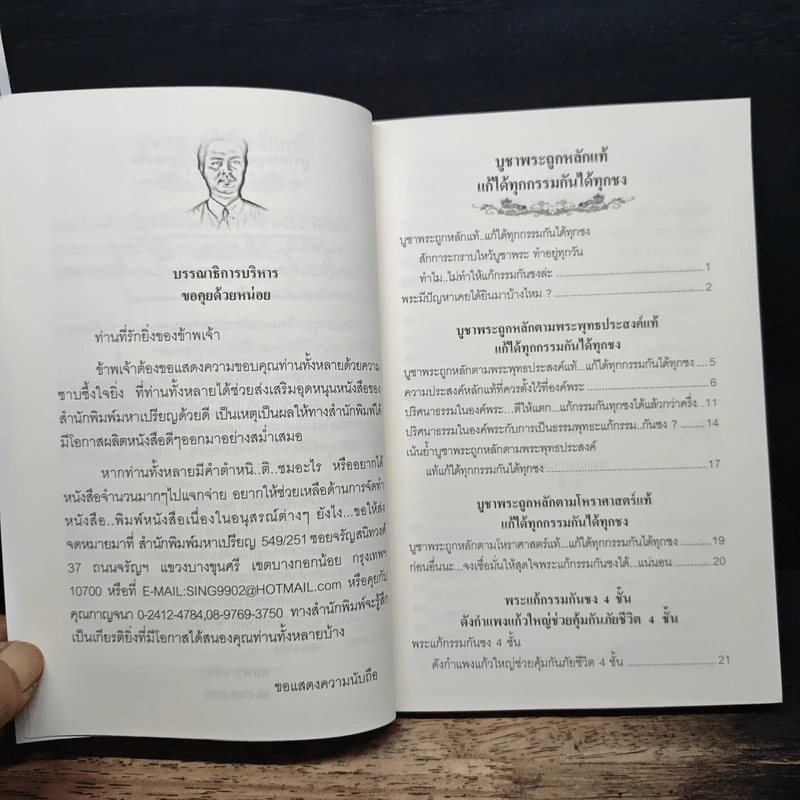 บรรณาธิการบริหาร
ขอคุยด้วยหน่อย
ท่านที่รักยิ่งของข้าพเจ้า
ข้าพเจ้าต้องขอแสดงความขอบคุณท่านทั้งหลายด้วยความ
ซาบซึ้งใจยิ่ง ที่ท่านทั้งหลายได้ช่วยส่งเสริมอุดหนุนหนังสือของ
สำนักพิมพ์มหาเปรียญด้วยดี เป็นเหตุเป็นผลให้ทางสำนักพิมพ์ได้
มีโอกาสผลิตหนังสือดีๆออกมาอย่างสม่ำเสมอ
หากท่านทั้งหลายมีคำตำหนิ..ติ..ชมอะไร หรืออยากได้
หนังสือจำนวนมากๆไปแจกจ่าย อยากให้ช่วยเหลือด้านการจัดทำ
หนังสือ..พิมพ์หนังสือเนื่องในอนุสรณ์ต่างๆ ยังไง...ขอให้ส่ง
จดหมายมาที่ สำนักพิมพ์มหาเปรียญ 549/251 ซอยจรัญสนิทวงศ์
37 ถนนจรัญฯ แขวงบางขุนศรี เขตบางกอกน้อย กรุงเทพฯ
10700 หรือที่ E-MAIL:SING9902@HOTMAIL.com หรือคุยกับ
คุณกาญจนา 0-2412-4784,08-9769-3750 ทางสำนักพิมพ์จะรู้สึก
เป็นเกียรติยิ่งที่มีโอกาสได้สนองคุณท่านทั้งหลายบ้าง
ขอแสดงความนับถือ
บูชาพระถูกหลักแท้
แก้ได้ทุกกรรมกันได้ทุกชง
บูชาพระถูกหลักแท้..แก้ได้ทุกกรรมกันได้ทุกชง
สักการะกราบไหว้บูชาพระ ทำอยู่ทุกวัน
ทำไม..ไม่ทำให้แก้กรรมกันชงล่ะ ........ 1
พระมีปัญหาเคยได้ยินมาบ้างไหม ? ........ 2
บูชาพระถูกหลักตามพระพุทธประสงค์แท้
แก้ได้ทุกกรรมกันได้ทุกชง
บูชาพระถูกหลักตามพระพุทธประสงค์แท้...แก้ได้ทุกกรรมกันได้ทุกชง ..... 5
ความประสงค์หลักแท้ที่ควรตั้งไว้ที่องค์พระ ........ 6
ปริศนาธรรมในองค์พระ...ตีให้แตก...แก้กรรมกันทุกชงได้แล้วกว่าครึ่ง . 11
ปริศนาธรรมในองค์พระกับการเป็นธรรมพุทธะแก้กรรม..กันชง ? ....... 14
เน้นย้ำบูชาพระถูกหลักตามพระพุทธประสงค์
แท้แก้ได้ทุกกรรมกันได้ทุกชง ........ 17
บูชาพระถูกหลักตามโหราศาสตร์แท้
แก้ได้ทุกกรรมกันได้ทุกชง
บูชาพระถูกหลักตามโหราศาสตร์แท้...แก้ได้ทุกกรรมกันได้ทุกชง ........ 19
ก่อนอื่นนะ...จงเชื่อมั่นให้สุดใจพระแก้กรรมกันชงได้...แน่นอน ....... 20
พระแก้กรรมกันชง 4 ชั้น
ดังกำแพงแก้วใหญ่ช่วยคุ้มกันภัยชีวิต 4 ชั้น
พระแก้กรรมกันชง 4 ชั้น
ดังกำแพงแก้วใหญ่ช่วยคุ้มกันภัยชีวิต 4 ชั้น ........ 21